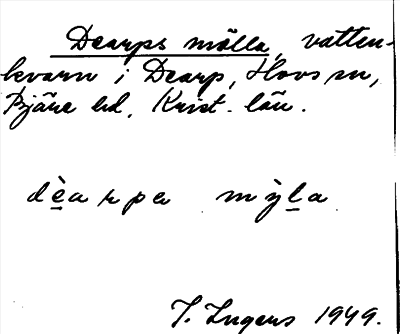 Dearps mölla, vatten-
kvarn i Dearp, Hovs sn,
Bjäre hd, Krist. län.
dèarpa mỳla
I. Ingers 1949.